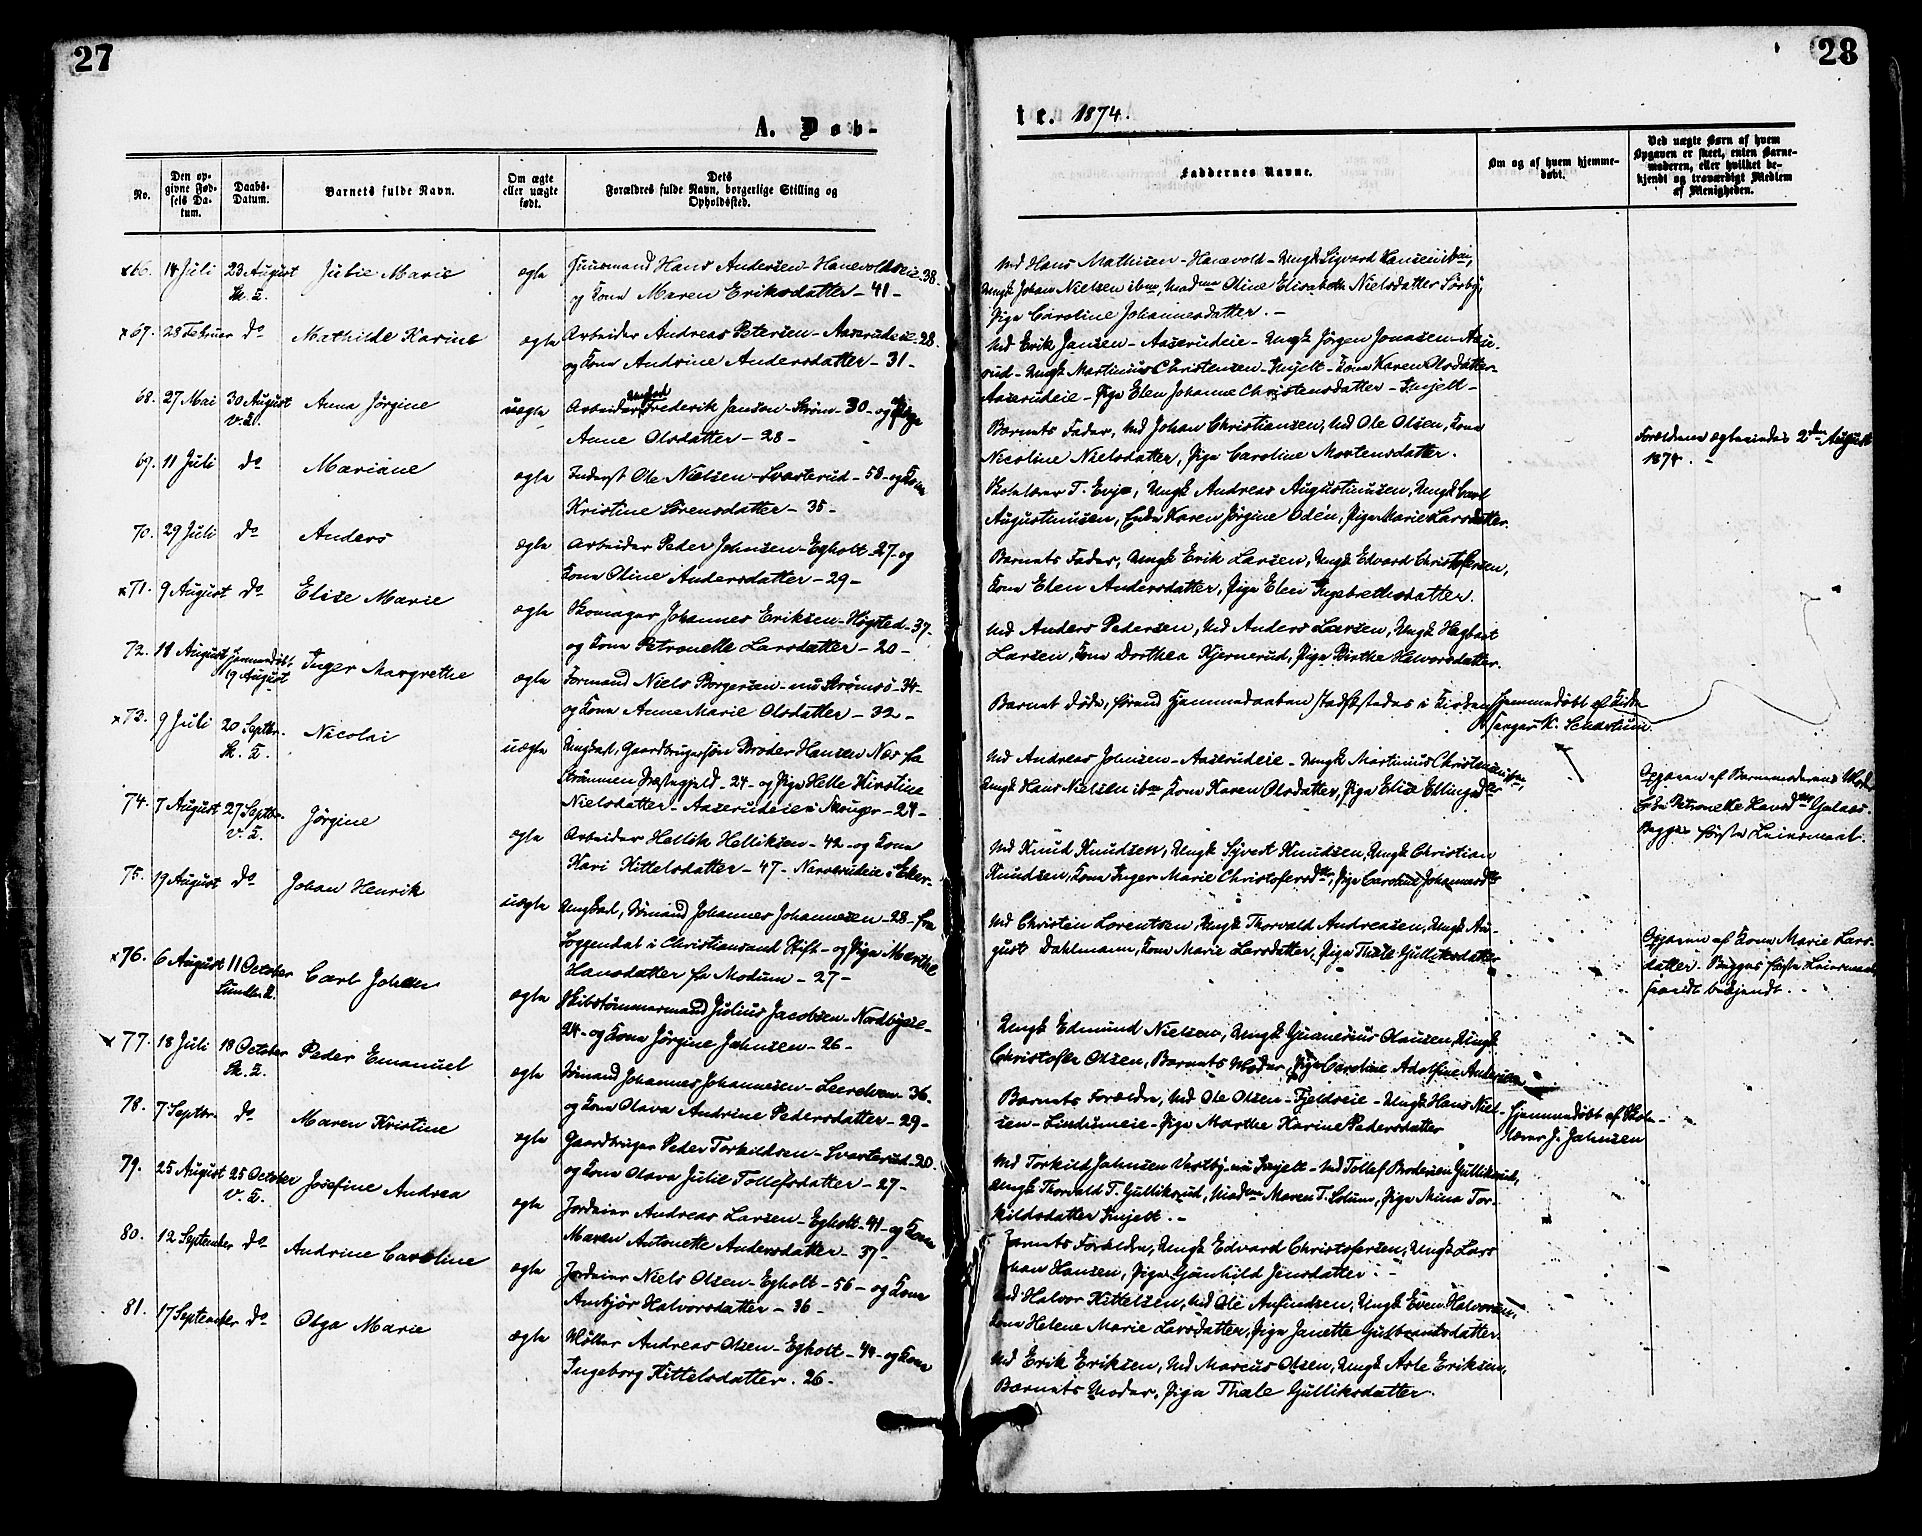 27
A. Døb-
No.
Den op-
givne Fød-
sels Da-
tum.
Daabs-
Datum.
Barnets fulde Navn.
Om ægte
eller uægte
født.
Dets
Forældres fulde Navn, borgerlige Stilling og
Opholdssted.
x66. 14 Juli 23 August Julie Marie ægte Huusmand Hans Andersen - Hanevoldseie - 38.
Sk. K. og Kone Maren Eriksdatter - 41 -
x67. 28 Februar do Mathilde Karine ægte Arbeider Andreas Petersen - Aaserudeie - 28.
og Kone Andrine Andersdatter - 31 -
68. 27 Mai 30 August Anna Jørgine uægte Arbeider Frederik Janson - Strøm - 30 - og Pige
V. K. Anne Olsdatter - 28 -
69. 11 Juli do Mariane ægte Inderst Ole Nielsen - Svarterud - 58 - og Kone
Kristine Sørensdatter - 35 -
70. 29 Juli do Anders ægte Arbeider Peder Johnsen - Egholt - 27 - og
Kone Oline Andersdatter - 29 -
x71. 9 August do Elise Marie ægte Skomager Johannes Eriksen - Høgsted - 37 -
og Kone Petronelle Larsdatter - 20 -
72. 18 August Hjemmedøbt 19 August Inger Margrethe ægte Formand Niels Borgersen - nu Strømsø - 34 -
og Kone Anne Marie Olsdatter - 32 -
x73. 9 Juli 20 Septbr. Nicolai uægte Ungkarl, Gaardbrugersøn Broder Hansen Nes fra
Sk. K. Strømmen Præstegjeld - 24 - og Pige Helle Kirstine
Nielsdatter - Aaserudeie i Skouger - 24 -
74. 7 August 27 Septbr. Jørgine ægte Arbeider Hellik Helliksen - 42 - og Kone
V. K. Kari Kittelsdatter - 47 - Narverudeie i Eker -
75. 19 August do Johan Henrik uægte Ungkarl, Sømand Johannes Johannesen - 28 - fra
Loggendal i Christiansand Stift - og Pige Marthe
Hansdatter fra Modum - 27 -
x76. 6 August 11 October Carl Johan ægte Skibstømmermand Julius Jacobsen - Nordbyeie -
24 - og Kone Jørgine Jahnsen - 26 -
77. 18 Juli 18 October Peder Emanuel ægte Sømand Johannes Johannesen - Leerelven - 36 -
Sk. K. og Kone Olava Andrine Pedersdatter - 29 -
78. 7 Septbr. do Maren Kristine ægte Gaardbruger Peder Torkildsen - Svarterud - 20.
og Kone Olava Julie Tollefsdatter - 27 -
79. 25 August 25 October Josefine Andrea ægte Jordeier Andreas Larsen - Egholt - 41 - og Kone
V. K. Maren Antonette Andersdatter - 37 -
80. 12 September do Andrine Caroline ægte Jordeier Niels Olsen - Egholt - 56 - og Kone
Ambjør Halvorsdatter - 36 -
81. 17 September do Olga Marie ægte Møller Andreas Olsen - Egholt - 44 - og Kone
Ingeborg Kittelsdatter. 26 -
28
te. 1874.
Faddernes Navne.
Om og af hvem hjemme-
døbt.
Ved uægte Børn af hvem
Opgaven er skeet, enten Barne-
moderen, eller hvilket be-
kjendt og troværdigt Medlem
af Menigheden.
Md Hans Mathisen - Hanevold - Ungk Sigvard Hansen ibm,
Ungk Johan Nielsen ibm, Madme Oline Elisabeth Nielsdatter Sørby,
Pige Caroline Johannesdatter. -
Md Erik Jansen - Aaserudeie - Ungk Jørgen Jonasen - Aase-
rud - Ungk Martinius Christensen - Knjelt - Kone Karen Olsdatter
Aaserudeie - Pige Elen Johanne Christensdatter - Knjelt -
Barnets Fader, Md Johan Christiansen, Md Ole Olsen, Kone
Nicoline Nielsdatter, Pige Caroline Mortensdatter.
Forældrene ægteviedes 2den August
1874. -
Skolelærer T. Evje, Ungk Andreas Augustinusen, Ungk Carl
Augustinusen, Enke Karen Jørgine Odén, Pige Marie Larsdatter.
Barnets Fader, Ungk Erik Larsen, Ungk Edvard Christofersen,
Kone Elen Andersdatter, Pige Elen Ingebrethsdatter.
Md Anders Pedersen, Md Anders Larsen, Ungk Hegbart
Larsen, Kone Dorthea Kjernerud, Pige Birthe Halvorsdatter.
Barnet døde, førend Hjemmedaaben stadfæstedes i Kirken
Hjemmedøbt af Kirke-
sanger K.
Md Andreas Johnsen - Aaserudeie - Ungk Martinius Christensen ibm,
Ungk Hans Nielsen ibm, Kone Karen Olsdatter, Pige Elise Ellingsdtr
Opgaven af Barnemoderens Moder
Enke Petronelle Hansdtr
Begges første Leiermaal.
Md Knud Knudsen, Ungk Syvert Knudsen, Ungk Christian
Knudsen, Kone Inger Marie Christofersdtr, Pige Caroline Johannesdtr
Md Christen Lorentsen, Ungk Thorvald Andreasen, Ungk Au-
gust Dahlmann, Kone Marie Larsdatter, Pige Thale Gulliksdatter
Opgaven af Kone Marie Lars-
datter. Begges første Leiermaal,
saavidt bekjendt.
Ungk Edmund Nielsen, Ungk Gunerius Olausen, Ungk
Christofer Olsen, Barnets Moder, Pige Caroline Adolfine Andersen
Barnets Forældre, Md Ole Olsen - Fjeldseie - Ungk Hans Niel-
sen - Lindumeie - Pige Marthe Karine Pedersdatter
Hjemmedøbt af Skole-
lærer J. Jahnsen
Md Torkild Jahnsen Vestby nu Knjelt - Md Tollef Brodersen Gulliksrud,
Ungk Thorvald T. Gulliksrud, Madme Maren T. Solum, Pige Mina Tor-
kildsdatter Knjelt. -
Barnets Forældre, Ungk Edvard Christofersen, Ungk Lars
Johan Hansen, Pige Gunhild Jensdatter. -
Md Halvor Kittelsen, Md Ole Anfindsen, Ungk Even Halvorsen,
Kone Helene Marie Larsdatter, Pige Janette Gulbrandsdatter.
Md Erik Eriksen, Md Marcus Olsen, Ungk Asle Eriksen,
Barnets Moder, Pige Thale Gulliksdatter.